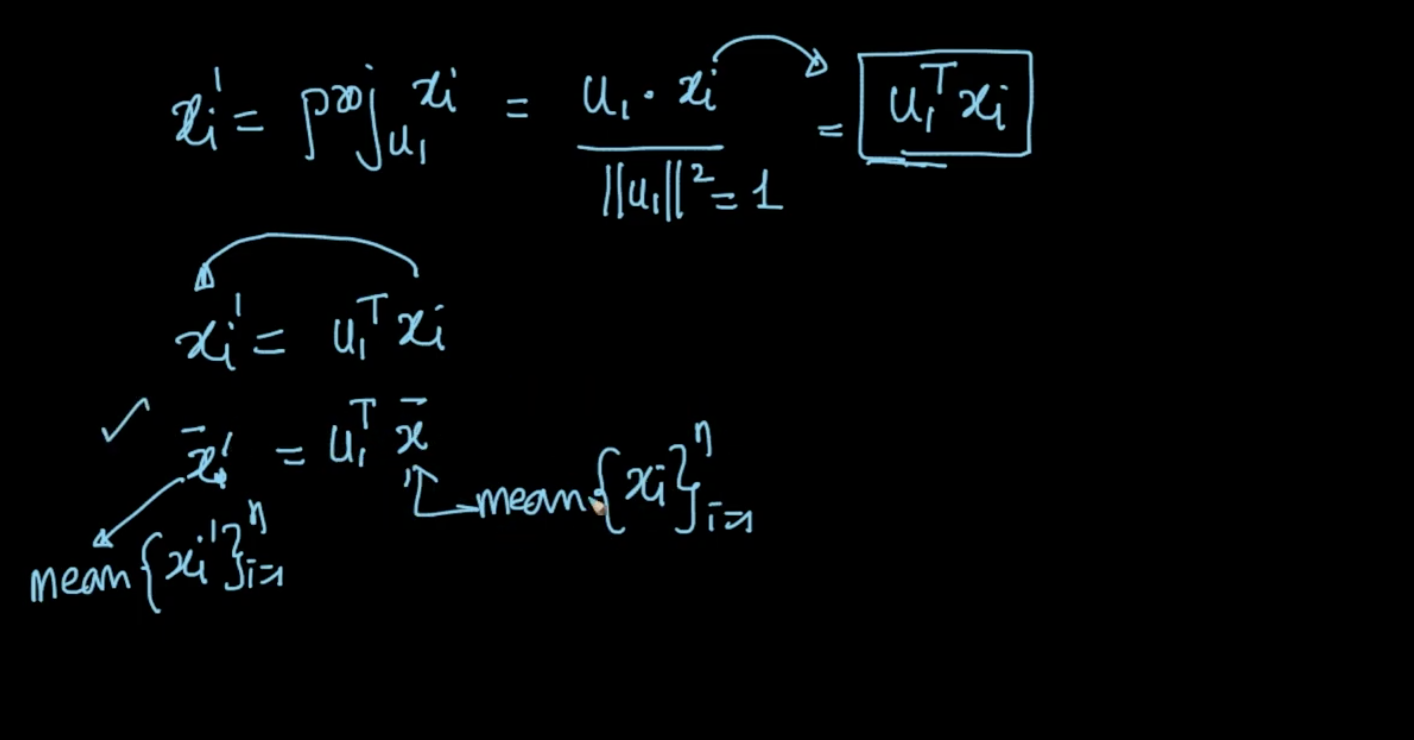 xi' = proj_u₁ xi = u₁ · xi / ||u₁||² = 1 = u₁ᵀxi
xi' = u₁ᵀxi
✓ x̄' = u₁ᵀ x̄
mean{xi}ⁿi=1
mean{xi'}ⁿi=1